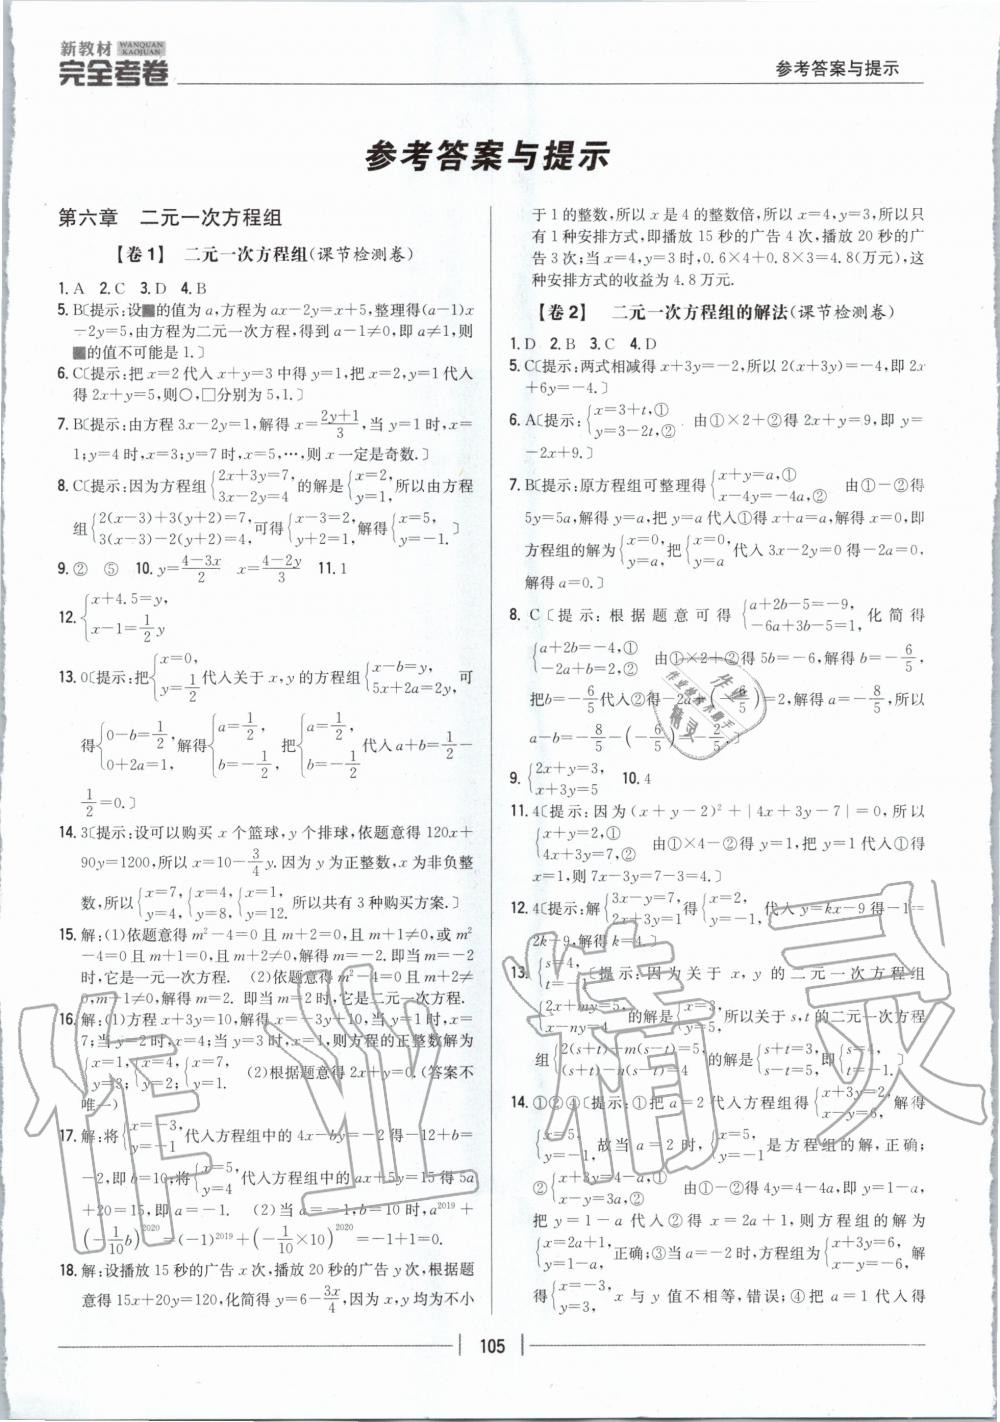 新教材 WANQUAN KAOJUAN
完全考卷
参考答案与提示
参考答案与提示
第六章 二元一次方程组
【卷1】 二元一次方程组(课节检测卷)
1. A 2. C 3. D 4. B
5. B〔提示:设■的值为a,方程为ax-2y=x+5,整理得(a-1)x
-2y=5,由方程为二元一次方程,得到a-1≠0,即a≠1,则
■的值不可能是1.〕
6. C〔提示:把x=2代入x+y=3中得y=1,把x=2,y=1代入
得2x+y=5,则○,□分别为5,1.〕
7. B〔提示:由方程3x-2y=1,解得x=(2y+1)/3,当y=1时,x=
1;y=4时,x=3;y=7时,x=5,…,则x一定是奇数.〕
8. C〔提示:因为方程组{2x+3y=7, 3x-2y=4 的解是{x=2, y=1, 所以由方程
组{2(x-3)+3(y+2)=7, 3(x-3)-2(y+2)=4, 可得{x-3=2, y+2=1, 解得{x=5, y=-1. 〕
9. ② ⑤ 10. y=(4-3x)/2 x=(4-2y)/3 11. 1
12. {x+4.5=y, x-1=1/2 y
13. 0〔提示:把{x=0, y=1/2 代入关于x,y的方程组{x-b=y, 5x+2a=2y, 可
得{0-b=1/2, 0+2a=1, 解得{a=1/2, b=-1/2, 把{a=1/2, b=-1/2 代入a+b=1/2-
1/2=0.〕
14. 3〔提示:设可以购买x个篮球,y个排球,依题意得120x+
90y=1200,所以x=10-3/4 y.因为y为正整数,x为非负整
数,所以{x=7, y=4, {x=4, y=8, {x=1, y=12. 所以共有3种购买方案.〕
15. 解:(1)依题意得m²-4=0且m+2=0,且m+1≠0,或m²
-4=0且m+1=0,且m+2≠0,解得m=-2.即当m=-2
时,它是一元一次方程. (2)依题意得m²-4=0且m+2≠
0,m+1≠0,解得m=2. 即当m=2时,它是二元一次方程.
16. 解:(1)方程x+3y=10,解得x=-3y+10,当y=1时,x=
7;当y=2时,x=4;当y=3时,x=1,则方程的正整数解为
{x=1, y=3; {x=4, y=2; {x=7, y=1. (2)根据题意得2x+y=0.(答案不
唯一)
17. 解:将{x=-3, y=-1 代入方程组中的4x-by=-2得-12+b=
-2,即b=10;将{x=5, y=4 代入方程组中的ax+5y=15得5a
+20=15,即a=-1. (2)当a=-1,b=10时,a²⁰¹⁹+
(-1/10 b)²⁰²⁰=(-1)²⁰¹⁹+(-1/10×10)²⁰²⁰=-1+1=0.
18. 解:设播放15秒的广告x次,播放20秒的广告y次,根据题
意得15x+20y=120,化简得y=6-3x/4,因为x,y均为不小
于1的整数,所以x是4的整数倍,所以x=4,y=3,所以只
有1种安排方式,即播放15秒的广告4次,播放20秒的广
告3次;当x=4,y=3时,0.6×4+0.8×3=4.8(万元),这
种安排方式的收益为4.8万元.
【卷2】 二元一次方程组的解法(课节检测卷)
1. D 2. B 3. C 4. D
5. C〔提示:两式相减得x+3y=-2,所以2(x+3y)=-4,即2x
+6y=-4.〕
6. A〔提示:{x=3+t,① y=3-2t,② 由①×2+②得2x+y=9,即y=
-2x+9.〕
7. B〔提示:原方程组可整理得{x+y=a,① x-4y=-4a,② 由①-②得
5y=5a,解得y=a,把y=a代入①得x+a=a,解得x=0,即
方程组的解为{x=0, y=a, 把{x=0, y=a 代入3x-2y=0得-2a=0,
解得a=0.〕
8. C〔提示:根据题意可得{a+2b-5=-9, -6a+3b-5=1, 化简得
{a+2b=-4,① -2a+b=2,② 由①×2+②得5b=-6,解得b=-6/5,
把b=-6/5代入②得-2a+(-6/5)=2,解得a=-8/5,所以
a-b=-8/5-(-6/5)=-2/5.〕
9. {2x+y=3, x+3y=5 10. 4
11. 4〔提示:因为(x+y-2)²+|4x+3y-7|=0,所以
{x+y=2,① 4x+3y=7,② 由①×4-②得y=1,把y=1代入①得
x=1,则7x-3y=7-3=4.〕
12. 4〔提示:解{3x-y=7, 2x+3y=1 得{x=2, y=-1, 代入y=kx-9得-1=
2k-9,解得k=4.〕
13. {s=4, t=-1 〔提示:因为关于x,y的二元一次方程组
{2x+my=5, x-ny=4 的解是{x=3, y=5, 所以关于s,t的二元一次方程
组{2(s+t)+m(s-t)=5, (s+t)-n(s-t)=4 的解是{s+t=3, s-t=5, 即{s=4, t=-1. 〕
14. ①②④〔提示:①把a=2代入方程组得{x+3y=2, x-y=6, 解得
{x=5, y=-1, 故当a=2时,{x=5, y=-1 是方程组的解,正确;
②{x+3y=4-a,① x-y=3a,② 由①-②得4y=4-4a,即y=1-a,
把y=1-a代入②得x=2a+1,则方程组的解为
{x=2a+1, y=1-a, 正确;③当a=-2时,方程组为{x+3y=6, x-y=-6, 解
得{x=-3, y=3, x与y值不相等,错误;④把a=1代入方程得
105
作业
作业检查小帮手
精灵
作业精灵